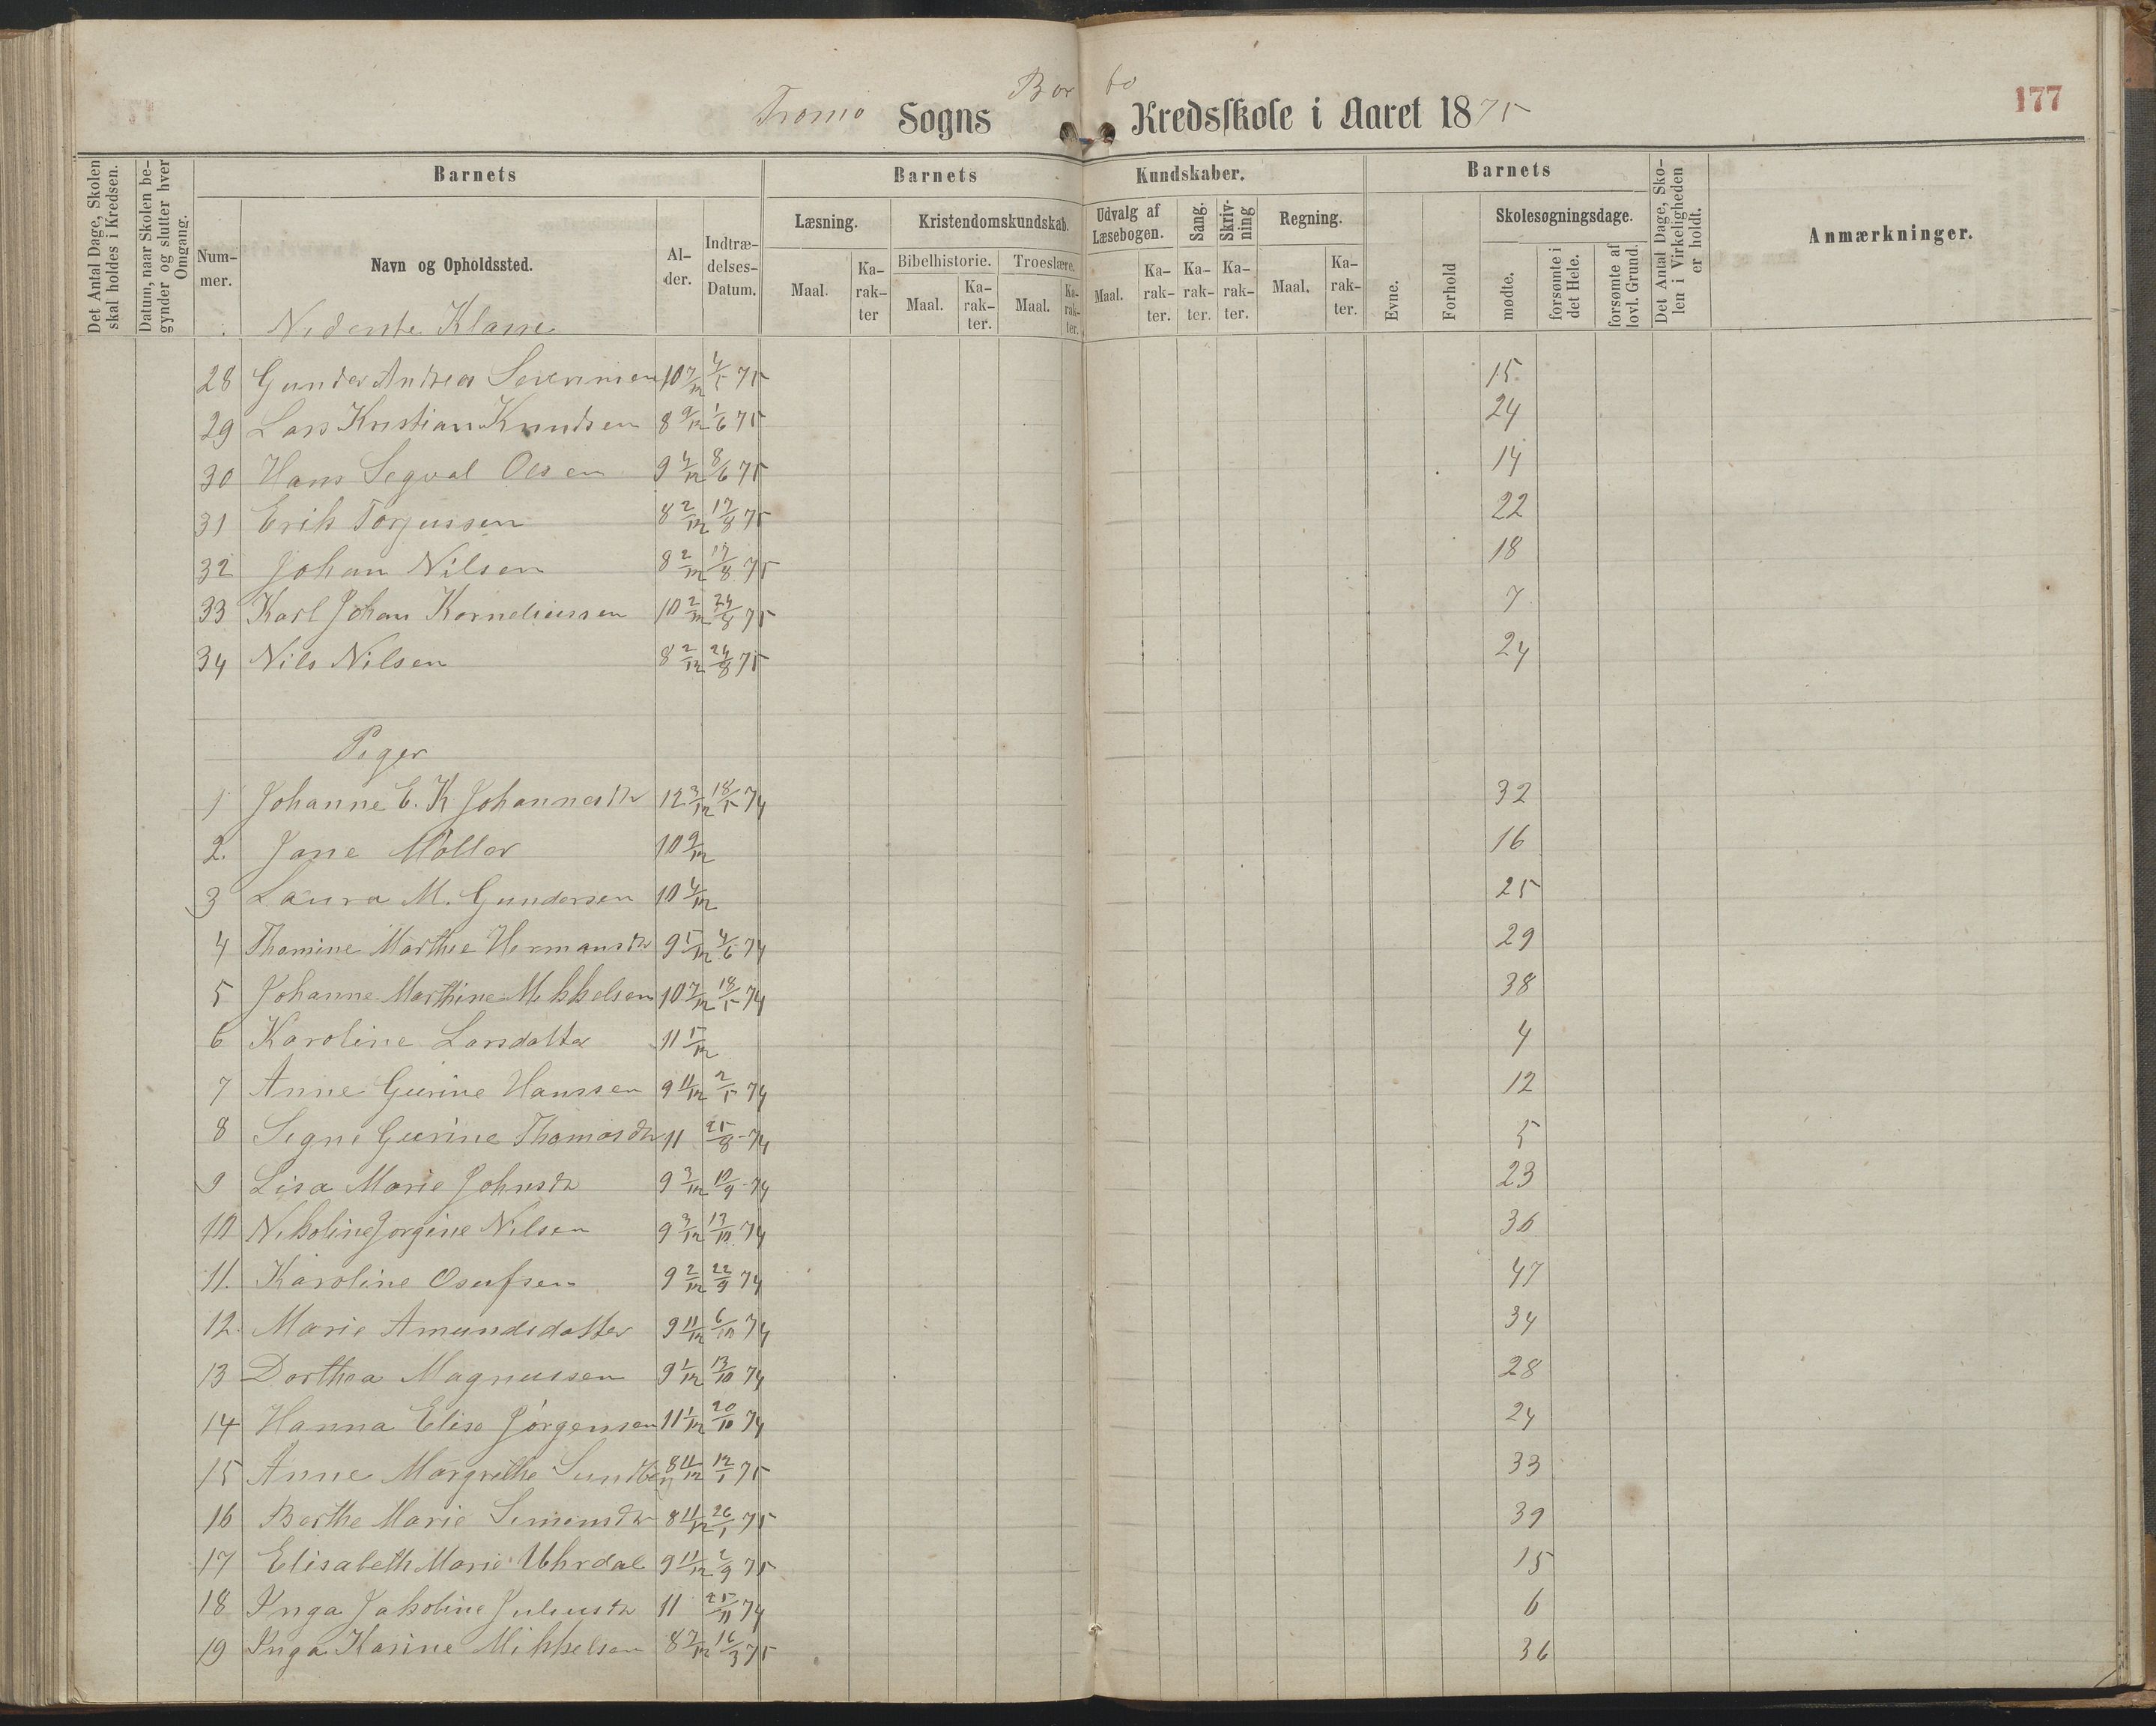 177
Tromø Sogns Bor fö Kredsskole i Aaret 1875
Det Antal Dage, Skolen skal holdes i Kredsen.
Datum, naar Skolen be-gynder og slutter hver Omgang.
Barnets
Num-mer.
Navn og Opholdssted.
Al-der.
Indtræ-delses-Datum.
Barnets Kundskaber.
Læsning.
Maal.
Ka-rak-ter
Kristendomskundskab.
Bibelhistorie.
Maal.
Ka-rak-ter.
Troeslære.
Maal.
Ka-rak-ter.
Udvalg af Læsebogen.
Maal.
Ka-rak-ter.
Sang.
Ka-rak-ter.
Skriv-ning
Ka-rak-ter.
Regning.
Maal.
Ka-rak-ter.
Barnets
Evne.
Forhold
Skolesøgningsdage.
mødte.
forsømte i det Hele.
forsømte af lovl. Grund.
Det Antal Dage, Sko-len i Virkeligheden er holdt.
Anmærkninger.
Nederste Klasse
28 Gunder Andreas Severinsen 10 7/12 4/5 75 15
29 Lars Kristian Knudsen 8 9/12 1/6 75 24
30 Hans Segval Olsen 9 4/12 8/6 75 14
31 Erik Torjussen 8 2/12 17/8 75 22
32 Johan Nilsen 8 2/12 17/8 75 18
33 Karl Johan Korneliussen 10 2/12 24/8 75 7
34 Nils Nilsen 8 2/12 24/8 75 24
Piger
1 Johanne E. K Johannesdr 12 3/12 18/5 74 32
2. Jane Møller 10 9/12 16
3 Laura M. Gundersen 10 4/12 25
4 Thomine Marthie Hermansdr 9 5/12 4/6 74 29
5 Johanne Marthine Mikkelsen 10 7/12 18/5 74 38
6 Karoline Larsdatter 11 5/12 4
7 Anne Gurine Hanssen 9 11/12 2/5 74 12
8 Signe Gurine Thomasdr 11 25/8 - 74 5
9 Lisa Marie Johnsdr 9 3/12 10/9 - 74 23
10 Nikoline Jorgine Nilsen 9 3/12 13/10 74 36
11. Karoline Osufsen 9 2/12 22/9 74 47
12. Marie Amundsdatter 9 11/12 6/10 74 34
13 Dorthea Magnussen 9 1/12 13/10 74 28
14 Hanna Elise Jörgensen 11 1/12 20/10 74 24
15 Anne Margrethe Sundbey 8 11/12 12/1 75 33
16 Berthe Marie Simonsdr 8 11/12 26/1 75 39
17 Elisabeth Marie Uhrdal 9 11/12 2/9 75 15
18 Inga Jakoline Juliusdr 11 25/11 74 6
19 Inga Karine Mikkelsen 8 7/12 16/3 75 36